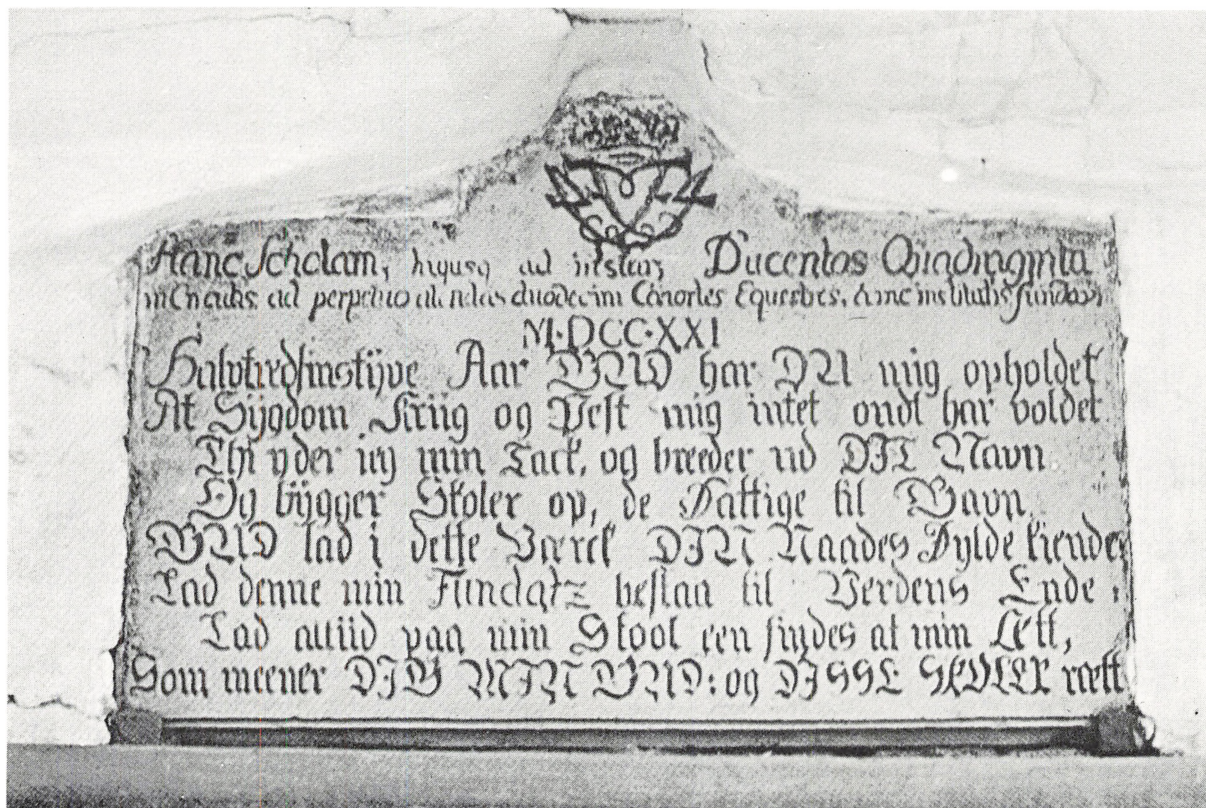 Hanc Scholam, hujusq ad instar, Ducentos Quadraginta
ad perpetuo duodecim Cohortes Equestres,
M·DCC·XXI
Halvtredsinstijve Aar GUD har DU mig opholdet
At Sijgdom Kriig og Pest mig intet ondt har voldet
Thi yder ieg min Tack, og breeder ud DIT Navn
Og bÿgger Skoler op, de Fattige til Gavn
GUD lad i dette Værck DIN Naades Fylde kiendes
Lad denne min Fundatz bestaa til Verdens Ende:
Lad altiid paa min Skool een findes af min Ætt,
Som meener DIG MIN GUD: og DISSE SKOLER rætt